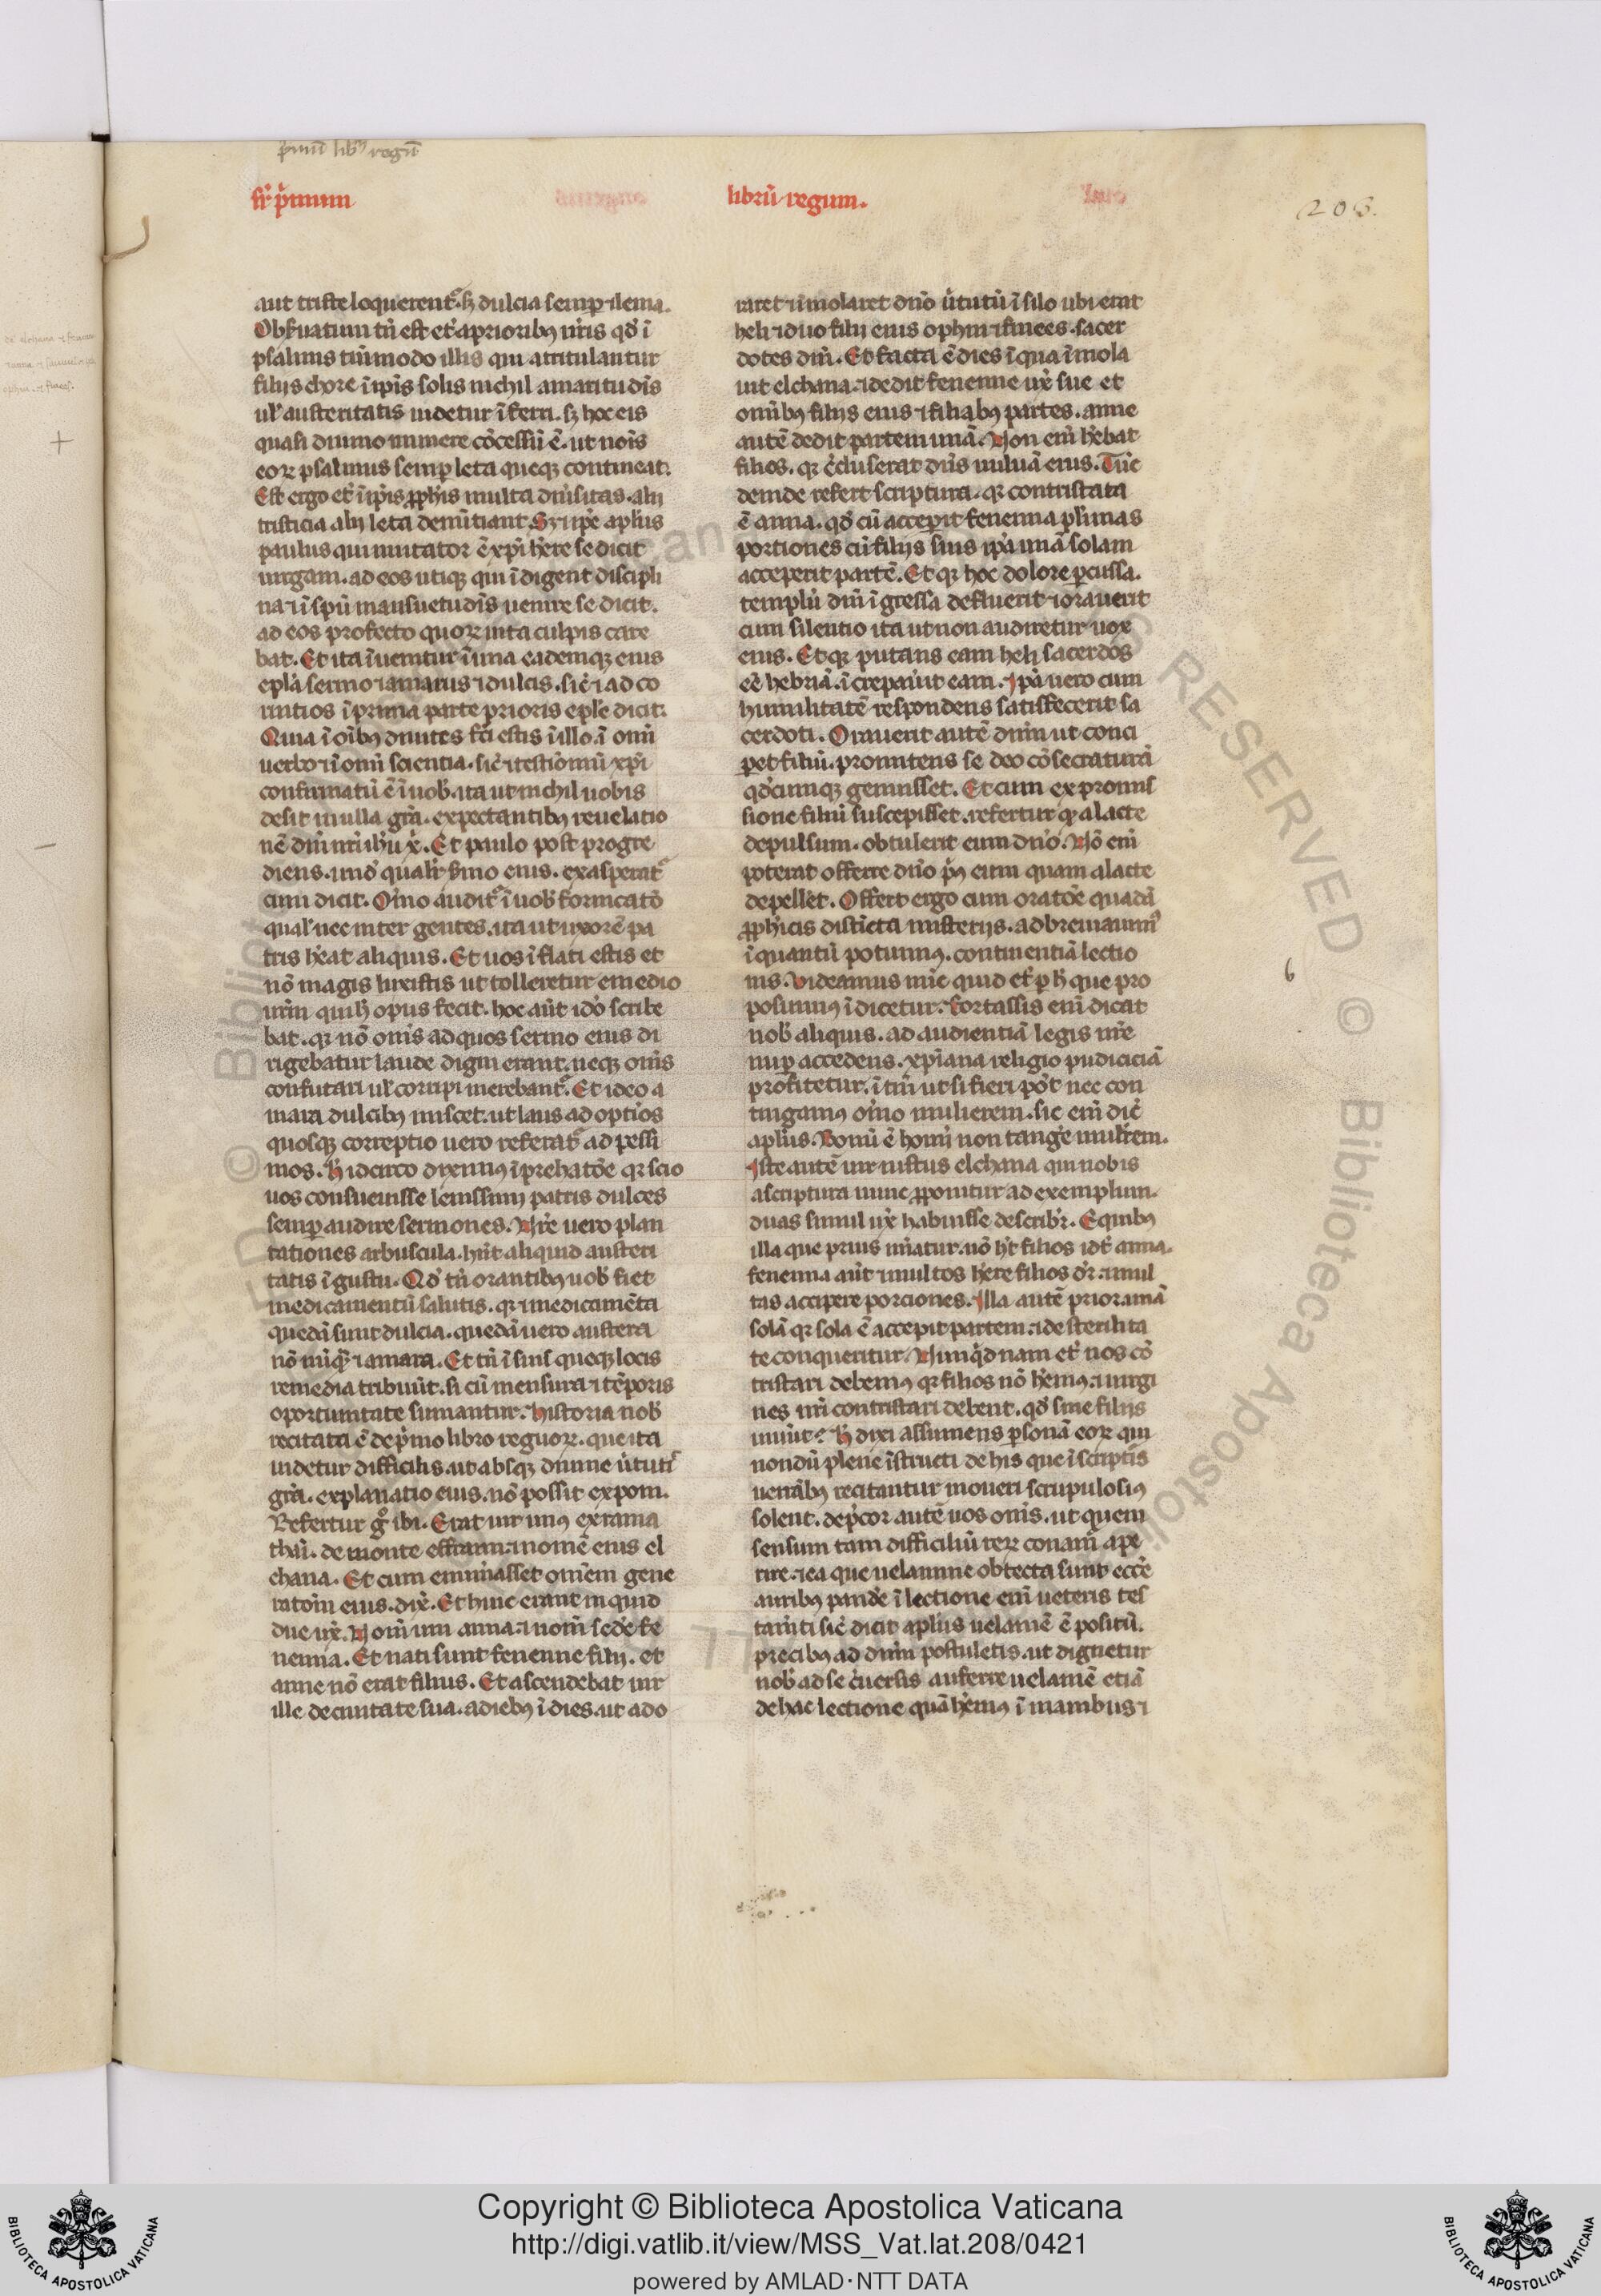 p̄mū lib᷑ regū
sr̄ p̄mum
librū regum.
208.
aut triste loquerent᷑. sȝ dulcia semp̱ ⁊ lenia.
Obẜuatum tn̄ est et᷑ a priorib᷒ nr̄is qd̓ ī
psalmis tm̄modo illis qui attitulantur
filijs chore ī ip̄is solis nichil amaritudīs
ul᷑ austeritatis uidetur īferri. sȝ hoc eis
quasi diuino munere cōcessū ē. ut noīs
eoꝝ psalmus semp̱ leta queqȝ contineat.
Est ergo et᷑ ī ip̄is ꝓph̄is multa diu̓sitas. alij
tristicia alij leta denūtiant. Sȝ ⁊ ip̄e apl̄us
paulus qui imitator ē xp̄i h̄ere se dicit
uirgam. ad eos utiqȝ qui īdigent discipli
na ⁊ ī spū mansuetudīs uenire se dicit.
ad eos profecto quoꝝ uita culpis care
bat. Et ita īuenitur ī una eademqȝ eius
epl̄a sermo ⁊ amarus ⁊ dulcis. sic̄ ⁊ ad co
rintios ī prima parte prioris epl̄e dicit.
Quia ī oīb᷒ diuites fc̄i estis ī illo. ī omī
uerbo ⁊ ī omī scientia. sic̄ ⁊ testīomū xp̄i
confirmatū ē ī uob̄. ita ut nichil uobis
desit in ulla gr̄a. expectantib᷒ reuelatio
nē dn̄i nr̄i ih̄u x̄. Et paulo post progre
diens. uid̓ qual᷑r ẜmo eius. exasperat᷑
cum dicit. Oīno audit᷑ ī uob̄ fornicatō
qual᷑ nec inter gentes. ita ut uxorē pa
tris h̄eat aliquis. Et uos īflati estis et
nō magis luxistis ut tolleretur e medio
ur̄m qui h̄ opus fecit. hoc aūt id̓o scribe
bat. qꝛ nō om̄s ad quos sermo eius di
rigebatur laude digni erant. neqȝ om̄s
confutari ul᷑ corripi merebant᷑. Et ideo a
mara dulcib᷒ miscet. ut laus ad optīos
quosqȝ correptio uero referat᷑ ad pessi
mos. H̄ idcirco diximus ī prefatōe qꝛ scio
uos consueuisse lenissimi patris dulces
semp̱ audire sermones. Nr̄e uero plan
tationes arbuscula. hn̄t aliquid austeri
tatis ī gustu. Qd̓ tn̄ orantib᷒ uob̄ fiet
medicamentū salutis. qꝛ ⁊ medicamēta
quedā sunt dulcia. quedā uero austera
nō nūqͣ ⁊ amara. Et tn̄ ī suis queqȝ locis
remedia tribuūt. si cū mensura ⁊ tēporis
oportunitate sumantur. Historia nob̄
recitata ē de p̄mo libro regnoꝝ. que ita
uidetur difficilis. ut absqȝ diuine u̓tuti᷒
gr̄a. explanatio eius. nō possit exponi.
Refertur gͦ ibi. Erat uir un᷒ ex rama
thaī. de monte effraim. ⁊ nomē eius el
chana. Et cum em̄iasset omēm gene
ratōm eius. dix̄. Et huic erant inquid
due ux̄. Nom̄ uni anna. ⁊ nom̄ sed̓e fe
nenna. Et nati sunt fenenne filij. et
anne nō erat filius. Et ascendebat uir
ille de ciuitate sua. a dieb᷒ ī dies. ut ado
raret ⁊ īmolaret dn̄o u̓tutū ī silo ubi erat
heli ⁊ duo filij eius ophni ⁊ finees. sacer
dotes dn̄i. Et facta ē dies ī qua īmola
uit elchana. ⁊ dedit fenenne ux̄ sue et
omīb᷒ filijs eius ⁊ filiab᷒ partes. anne
autē dedit partem unā. Non em̄ h̄ebat
filios. qꝛ cc̄luserat dn̄s uuluā eius. Tūc
deinde refert scriptura. qꝛ contristata
ē anna. qd̓ cū accep̱it fenenna pl̄imas
portiones cū filijs suis ip̄a unā solam
acceperit partē. Et qꝛ hoc dolore p̱cussa.
templū dn̄i īgressa defluerit ⁊ orauerit
cum silentio ita ut non audiretur uox
eius. Et qꝛ putans eam heli sacerdos
eē hebriā. īcrepauīt eam. Ip̄a uero cum
humilitatē respondens satisfecerit sa
cerdoti. Orauerit autē dn̄m ut conci
p̱et filiū. promittens se deo cōsecraturā
qd̓cumqȝ genuisset. Et cum ex promis
sione filiū suscepisset. refertur qꝛ a lacte
depulsum. obtulerit eum dn̄o. Nō em̄
poterat offerre dn̄o p̓᷒ eum quam a lacte
depellet̄. Offert ergo cum oratōe quadā
ꝓph̄icis distīcta misterijs. adbreuiauim᷒
ī quantū potuim᷒. continentiā lectio
nis. Videamus nūc quid et᷑ p̱ h̄ que pro
posuim᷒ īdicetur. Fortassis em̄ dicat
nob̄ aliquis. ad audientiā legis nr̄e
nup̱ accedens. xp̄iana religio pudiciciā
profitetur. ī tm̄ ut si fieri pōt nec con
tingam᷒ oīno mulierem. sic em̄ dic̄
apl̄us. Bonū ē homī non tange̓ mulr̄em.
Iste autē uir iustus elchana qui nobis
a scriptura nunc ꝓponitur ad exemplum.
duas simul ux̄ habuisse describr̄. E quib᷒
illa que prius nīatur. nō h̄t filios id̓t anna.
fenenna aūt ⁊ multos h̄ere filios dr̄. ⁊ mul
tas accipere porciones. Illa autē prior unā
solā qꝛ sola ē accepit partem. ⁊ de sterilita
te conqueritur. Nunqͥd nam et᷑ nos cō
tristari debem᷒ qꝛ filios nō h̄em᷒. ⁊ uirgi
nes nr̄i contristari debent. qd̓ sine filijs
uiuūt? H̄ dixi assumens p̱sonā eoꝝ qui
nondū plene īstructi de his que ī scriptis
uenīab᷒ recitantur moueri scrupulosi᷒
solent. dep̄cor autē uos om̄s. ut quem
sensum tam difficiliū reꝝ conam̄ ape
rire. ⁊ ea que uelamine obtecta sunt ecc̄e
aurib᷒ pand̓e ī lectione em̄ ueteris tes
tam̄ti sic̄ dicit apl̄us uelamē ē positū.
precib᷒ ad dn̄m postuletis. ut dignetur
nob̄ ad se cōuersis auferre uelamē etiā
de hac lectione quā h̄em᷒ ī manibus ⁊
6
Copyright © Biblioteca Apostolica Vaticana
http://digi.vatlib.it/view/MSS_Vat.lat.208/0421
powered by AMLAD·NTT DATA
BIBLIOTECA APOSTOLICA VATICANA
BIBLIOTECA APOSTOLICA VATICANA